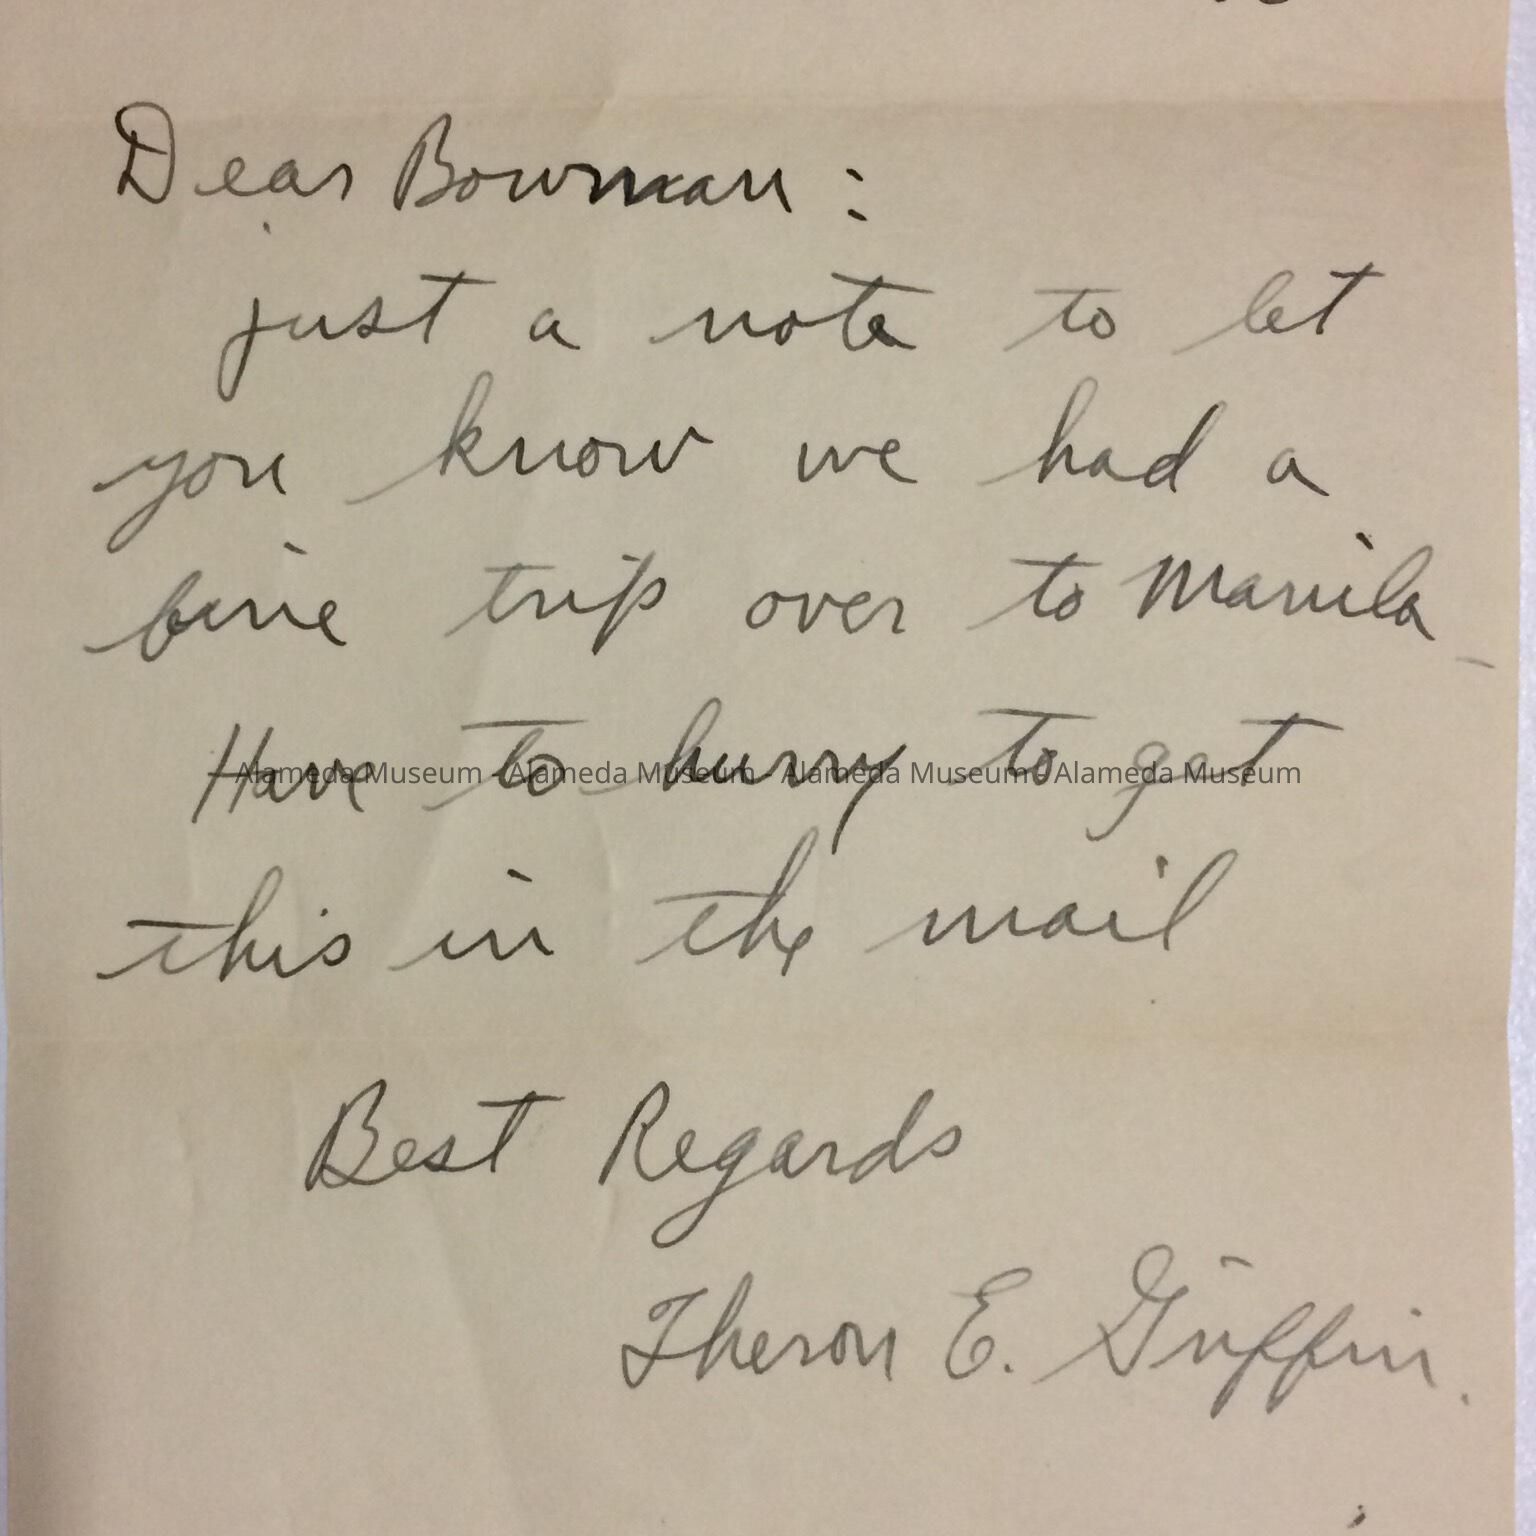 Dear Bowman :
just a note to let
you know we had a
fine trip over to Manila -
Have to hurry to get
Alameda Museum - Alameda Museum - Alameda Museum - Alameda Museum
this in the mail
Best Regards
Theron E. Griffin.